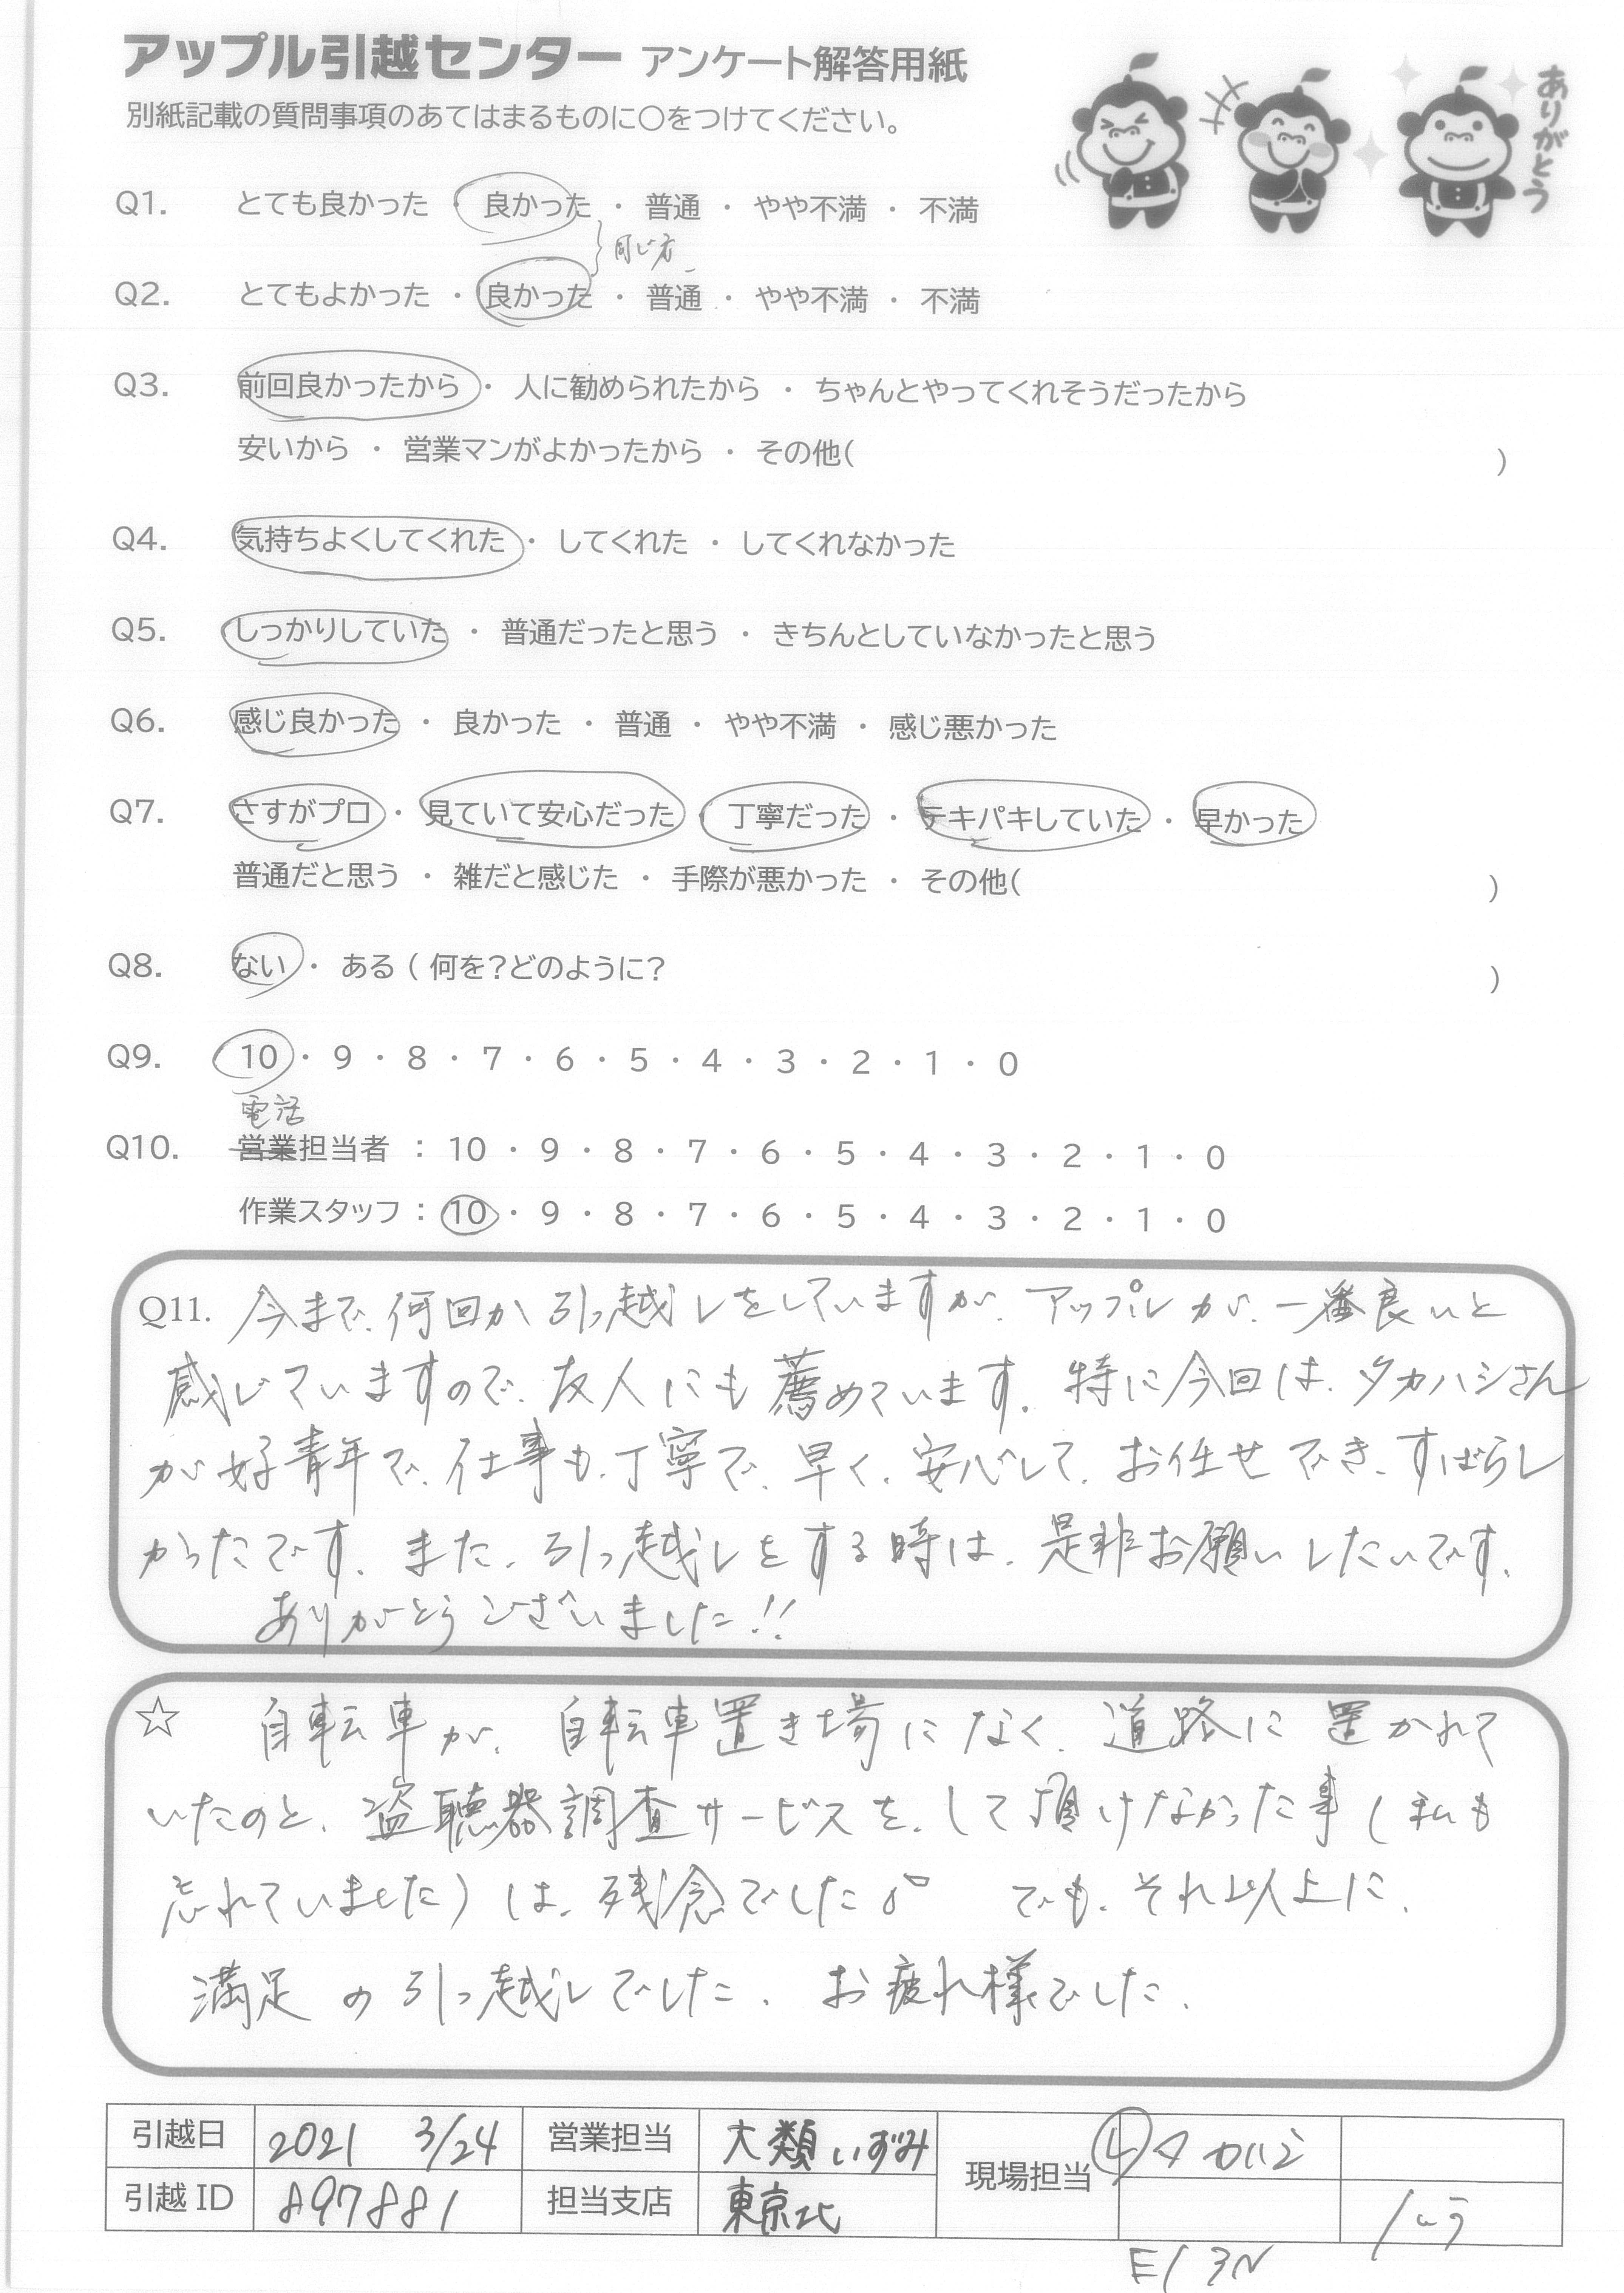 アップル引越センター アンケート解答用紙
別紙記載の質問事項のあてはまるものに○をつけてください。
ありがとう
Q1. とても良かった ・ 良かった ・ 普通 ・ やや不満 ・ 不満
同じ方
Q2. とてもよかった ・ 良かった ・ 普通 ・ やや不満 ・ 不満
Q3. 前回良かったから ・ 人に勧められたから ・ ちゃんとやってくれそうだったから
安いから ・ 営業マンがよかったから ・ その他( )
Q4. 気持ちよくしてくれた ・ してくれた ・ してくれなかった
Q5. しっかりしていた ・ 普通だったと思う ・ きちんとしていなかったと思う
Q6. 感じ良かった ・ 良かった ・ 普通 ・ やや不満 ・ 感じ悪かった
Q7. さすがプロ ・ 見ていて安心だった ・ 丁寧だった ・ テキパキしていた ・ 早かった
普通だと思う ・ 雑だと感じた ・ 手際が悪かった ・ その他( )
Q8. ない ・ ある ( 何を?どのように? )
Q9. 10 ・ 9 ・ 8 ・ 7 ・ 6 ・ 5 ・ 4 ・ 3 ・ 2 ・ 1 ・ 0
電話
Q10. 営業担当者 : 10 ・ 9 ・ 8 ・ 7 ・ 6 ・ 5 ・ 4 ・ 3 ・ 2 ・ 1 ・ 0
作業スタッフ : 10 ・ 9 ・ 8 ・ 7 ・ 6 ・ 5 ・ 4 ・ 3 ・ 2 ・ 1 ・ 0
Q11. 今まで、何回か引っ越しをしていますが、アップルが、一番良いと
感じていますので、友人にも薦めています。特に今回は、タカハシさん
が好青年で、仕事も、丁寧で、早く、安心して、お任せでき、すばらし
かったです。また、引っ越しをする時は、是非お願いしたいです。
ありがとうございました!!
☆ 自転車が、自転車置き場になく、道路に置かれて
いたのと、盗聴器調査サービスを、して頂けなかった事(私も
忘れていました)は、残念でした。 でも、それ以上に、
満足の引っ越しでした。お疲れ様でした。
引越日 2021 3/24 営業担当 大類いずみ 現場担当
引越ID 897881 担当支店 東京北